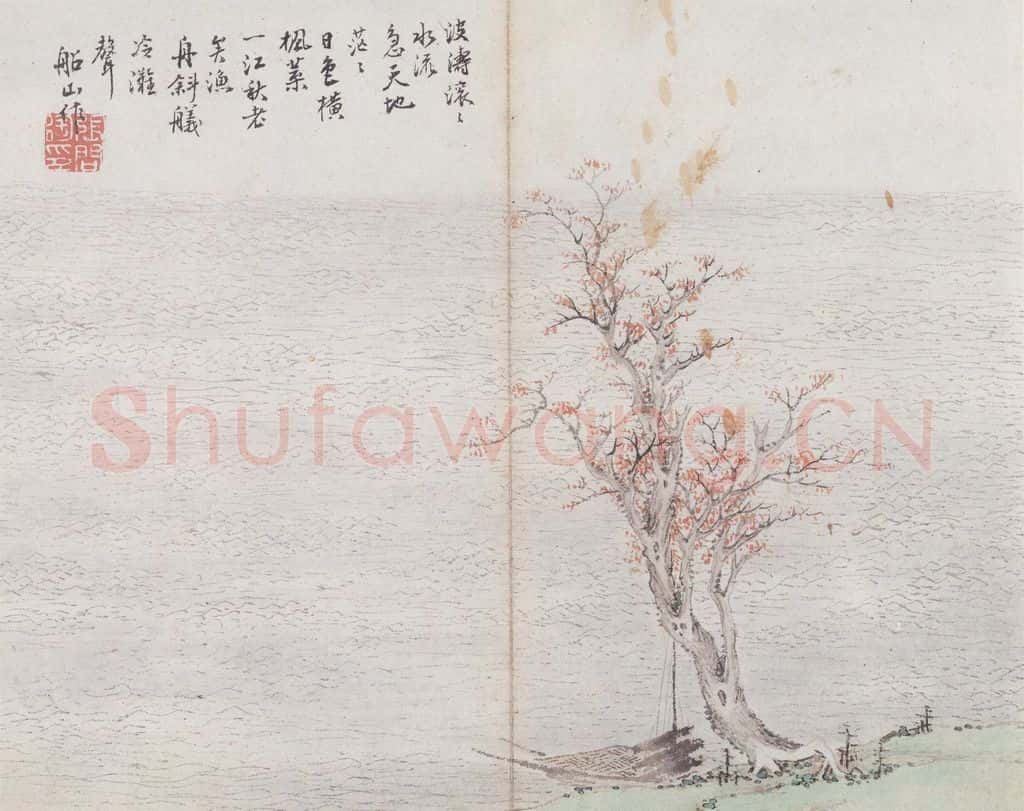 波濤滾〻
水流
急天地
茫〻
日色橫
楓葉
一江秋老
矣漁
舟斜艤
冷灘
聲
船山作
張問陶印
Shufawang.CN